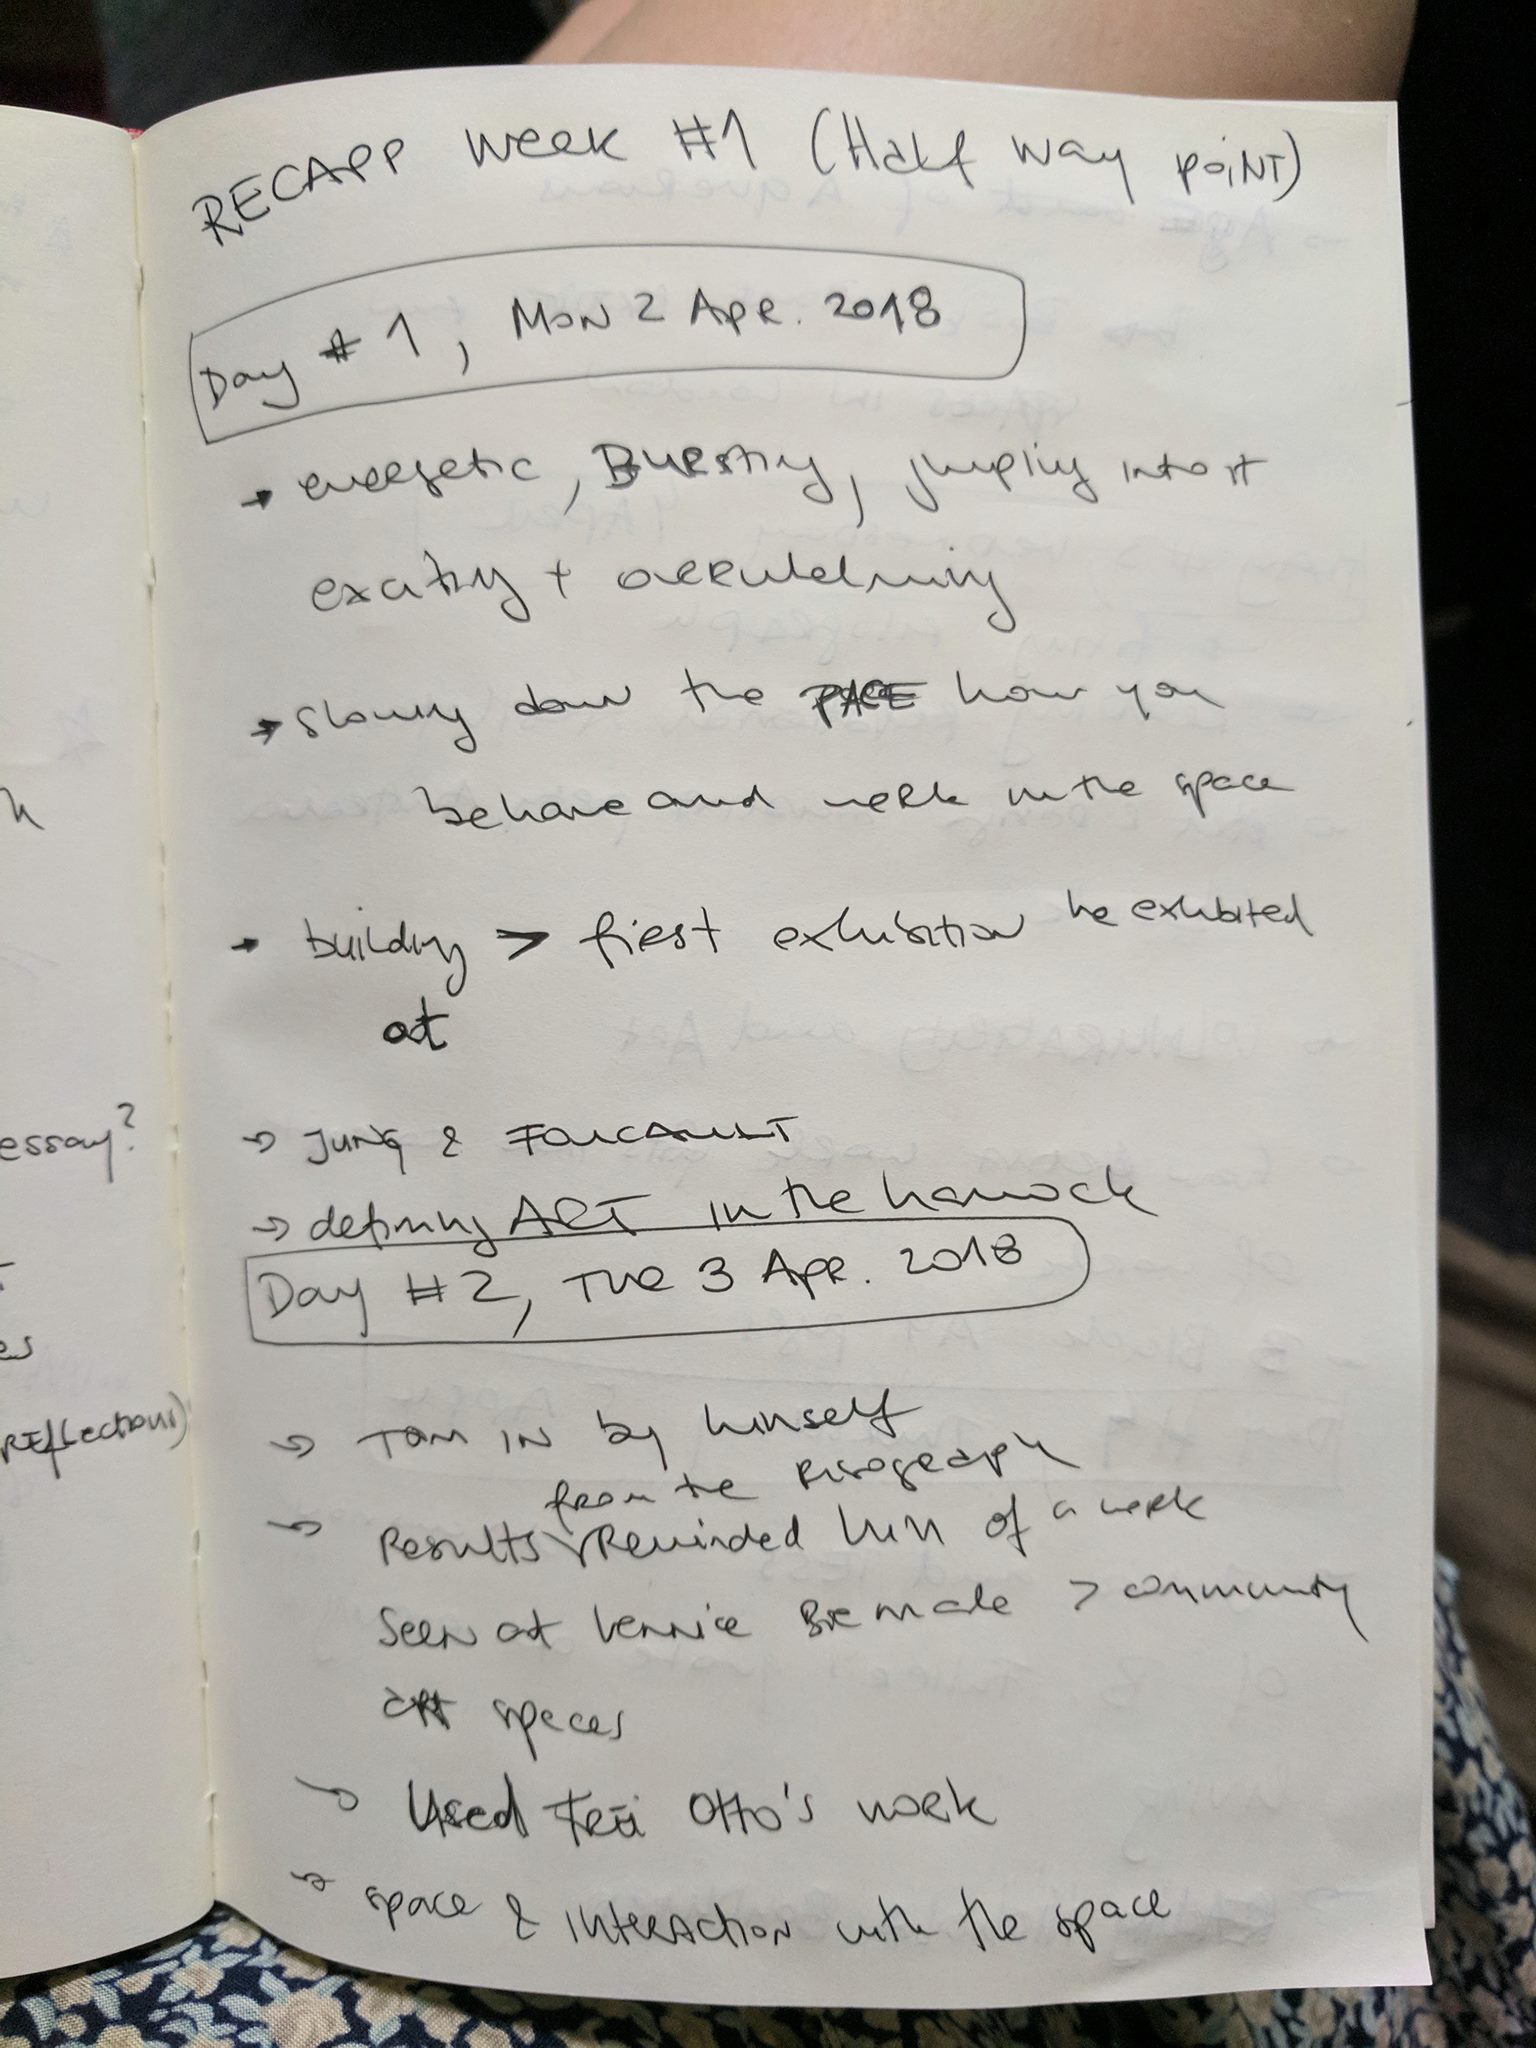 RECAPP week #1 (Half way POINT)
Day #1, MON 2 APR. 2018
→ energetic, BURSTing, jumping into it
exciting + overwhelming
→ slowing down the PACE how you
behave and work in the space
→ building > first exhibition he exhibited
at
→ JUNG & FOUCAULT
→ defining ART in the hamock
Day #2, TUE 3 APR. 2018
→ TOM IN by himself
from the Risograph
→ Results Reminded him of a work
seen at Vennice Biennale > community
art spaces
→ Used Frei Otto's work
→ space & INTERACTION with the space
essay?
es
REflections)